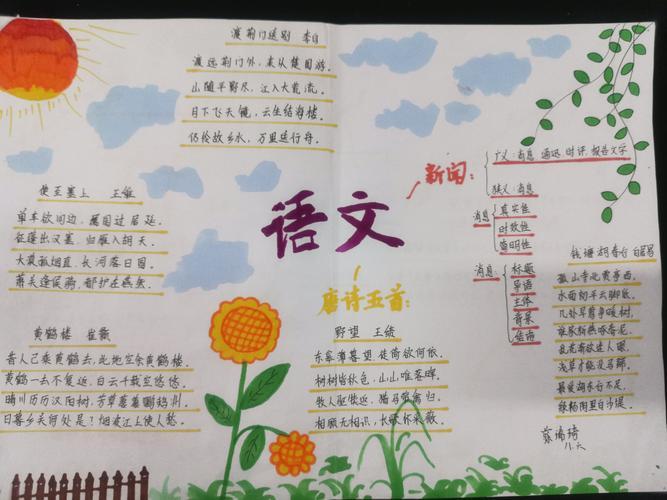 渡荆门送别 李白
渡远荆门外，来从楚国游。
山随平野尽，江入大荒流。
月下飞天镜，云生结海楼。
仍怜故乡水，万里送行舟。
使至塞上 王维
单车欲问边，属国过居延。
征蓬出汉塞，归雁入胡天。
大漠孤烟直，长河落日圆。
萧关逢候骑，都护在燕然。
黄鹤楼 崔颢
昔人已乘黄鹤去，此地空余黄鹤楼。
黄鹤一去不复返，白云千载空悠悠。
晴川历历汉阳树，芳草萋萋鹦鹉洲。
日暮乡关何处是？烟波江上使人愁。
语文
唐诗五首：
野望 王绩
东皋薄暮望，徙倚欲何依。
树树皆秋色，山山唯落晖。
牧人驱犊返，猎马带禽归。
相顾无相识，长歌怀采薇。
新闻：
广义：消息 通迅 时评，报告文学
狭义：消息
消息
真实性
时效性
简明性
消息：
标题
导语
主体
背景
结语
钱塘湖春行 白居易
孤山寺北贾亭西。
水面初平云脚低。
几处早莺争暖树，
谁家新燕啄春泥。
乱花渐欲迷人眼，
浅草才能没马蹄。
最爱湖东行不足，
绿杨阴里白沙堤。
八.六